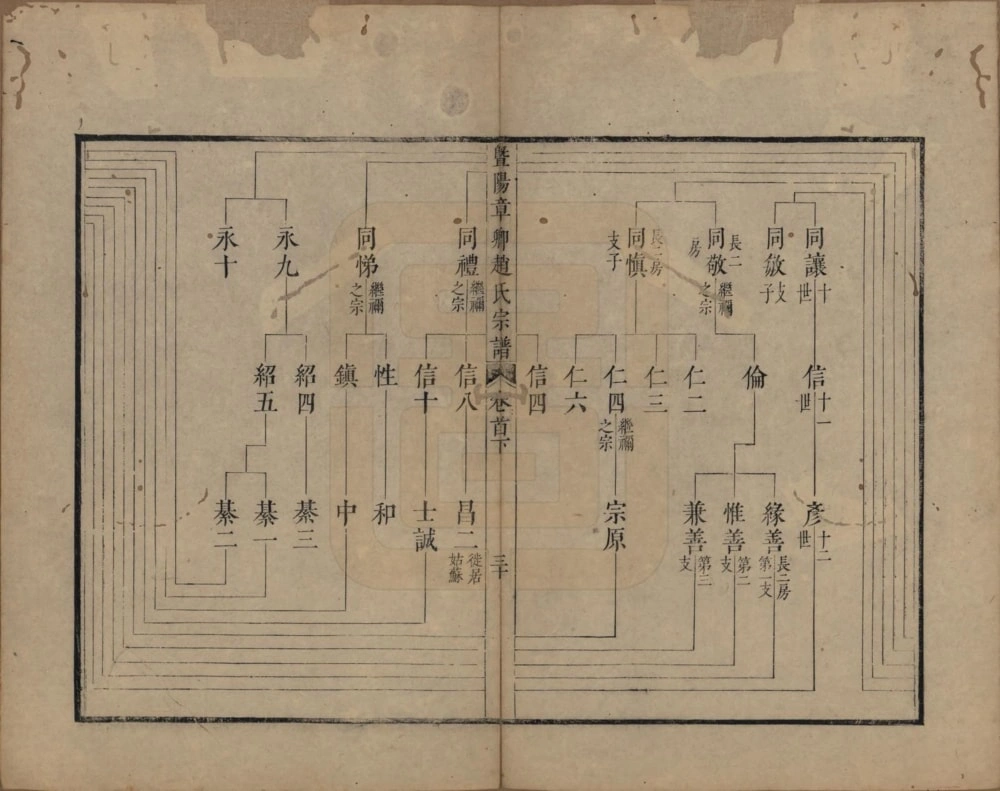 同讓 十世
同敏 支子
同敬 長二房 繼禰之宗
同慎 長二房支子
信 十一世
倫
仁二
仁三
仁四 繼禰之宗
仁六
信四
彥 十二世
緣善 長二房第一支
惟善 第二支
兼善 第三支
宗原
暨陽章卿趙氏宗譜 卷首下 三十
同禮 繼禰之宗
同悌 繼禰之宗
永九
永十
信八
信十
性
鎮
紹四
紹五
昌二 徙居姑蘇
士誠
和
中
綦三
綦一
綦二